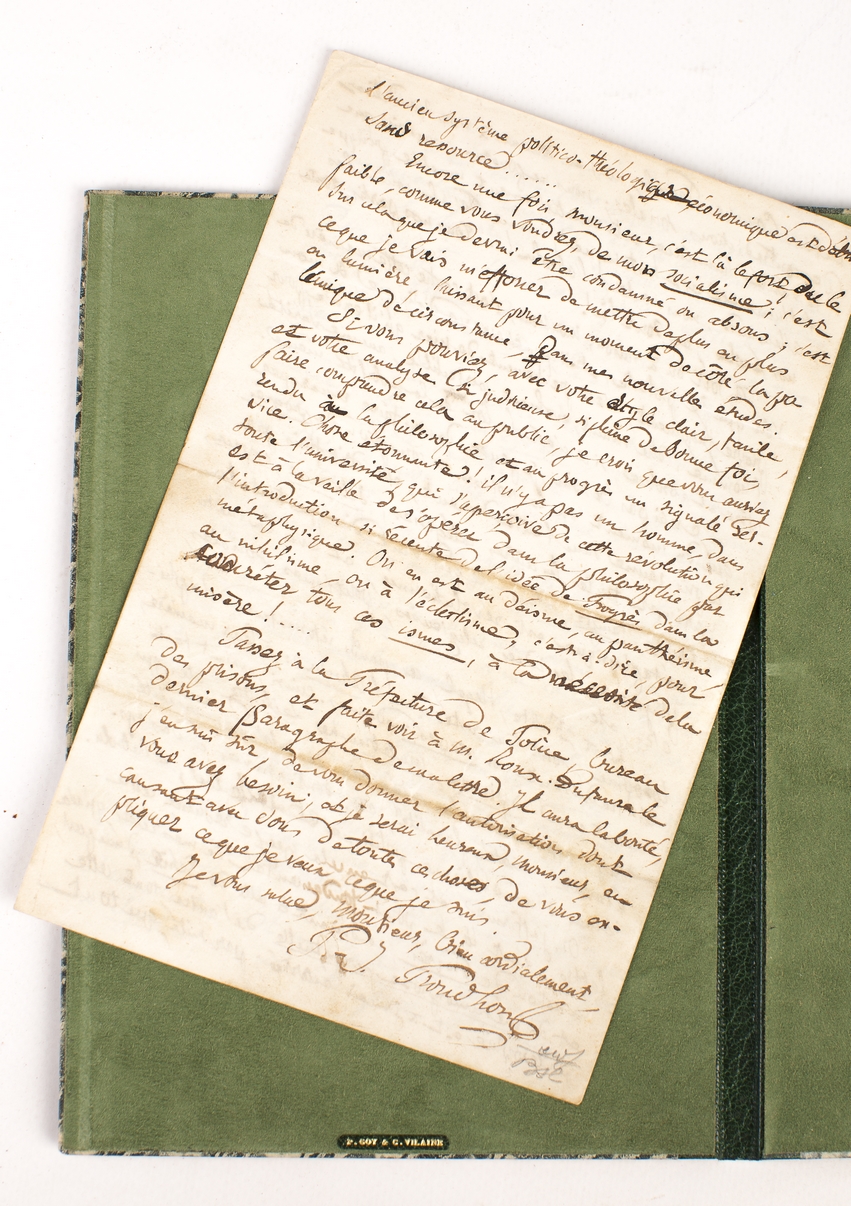 l'ancien système politico-théologique économique est
sans ressource......
Encore une fois, monsieur, c'est là le fort ou le
faible, comme vous voudrez, de mon socialisme ; c'est
sur cela que je devrai être condamné ou absous ; c'est
ce que je vais m'efforcer de mettre de plus en plus
en lumière laissant pour un moment de côté la po
lémique de circonstance, dans mes nouvelles études.
Si vous pouviez, avec votre style clair, facile,
et votre analyse si judicieuse, si pleine de bonne foi,
faire comprendre cela au public, je crois que vous auriez
rendu à la philosophie et au progrès un signalé ser-
vice. Chose étonnante ! il n'y a pas un homme, dans
toute l'université, qui s'aperçoive de cette révolution qui
est à la veille de s'opérer dans la philosophie par
l'introduction si récente de l'idée de Progrès, dans la
métaphysique. On en est au déisme, au panthéisme
au nihilisme, ou à l'éclectisme, c'est-à-dire, pour
décréter tous ces ismes, à la de la
misère !....
Passez à la Préfecture de Police, bureau
des prisons, et faite voir à m. Roux. Dufaure le
dernier Paragraphe de ma lettre. Il aura la bonté,
j'en suis sûr de vous donner l'autorisation dont
vous avez besoin ; et je serai heureux, monsieur, en
causant avec vous de toutes ces choses, de vous ex-
pliquer ce que je veux et ce que je suis.
Je vous salue, monsieur, bien cordialement
P. J. Proudhon
P. GOY & C. VILAINE